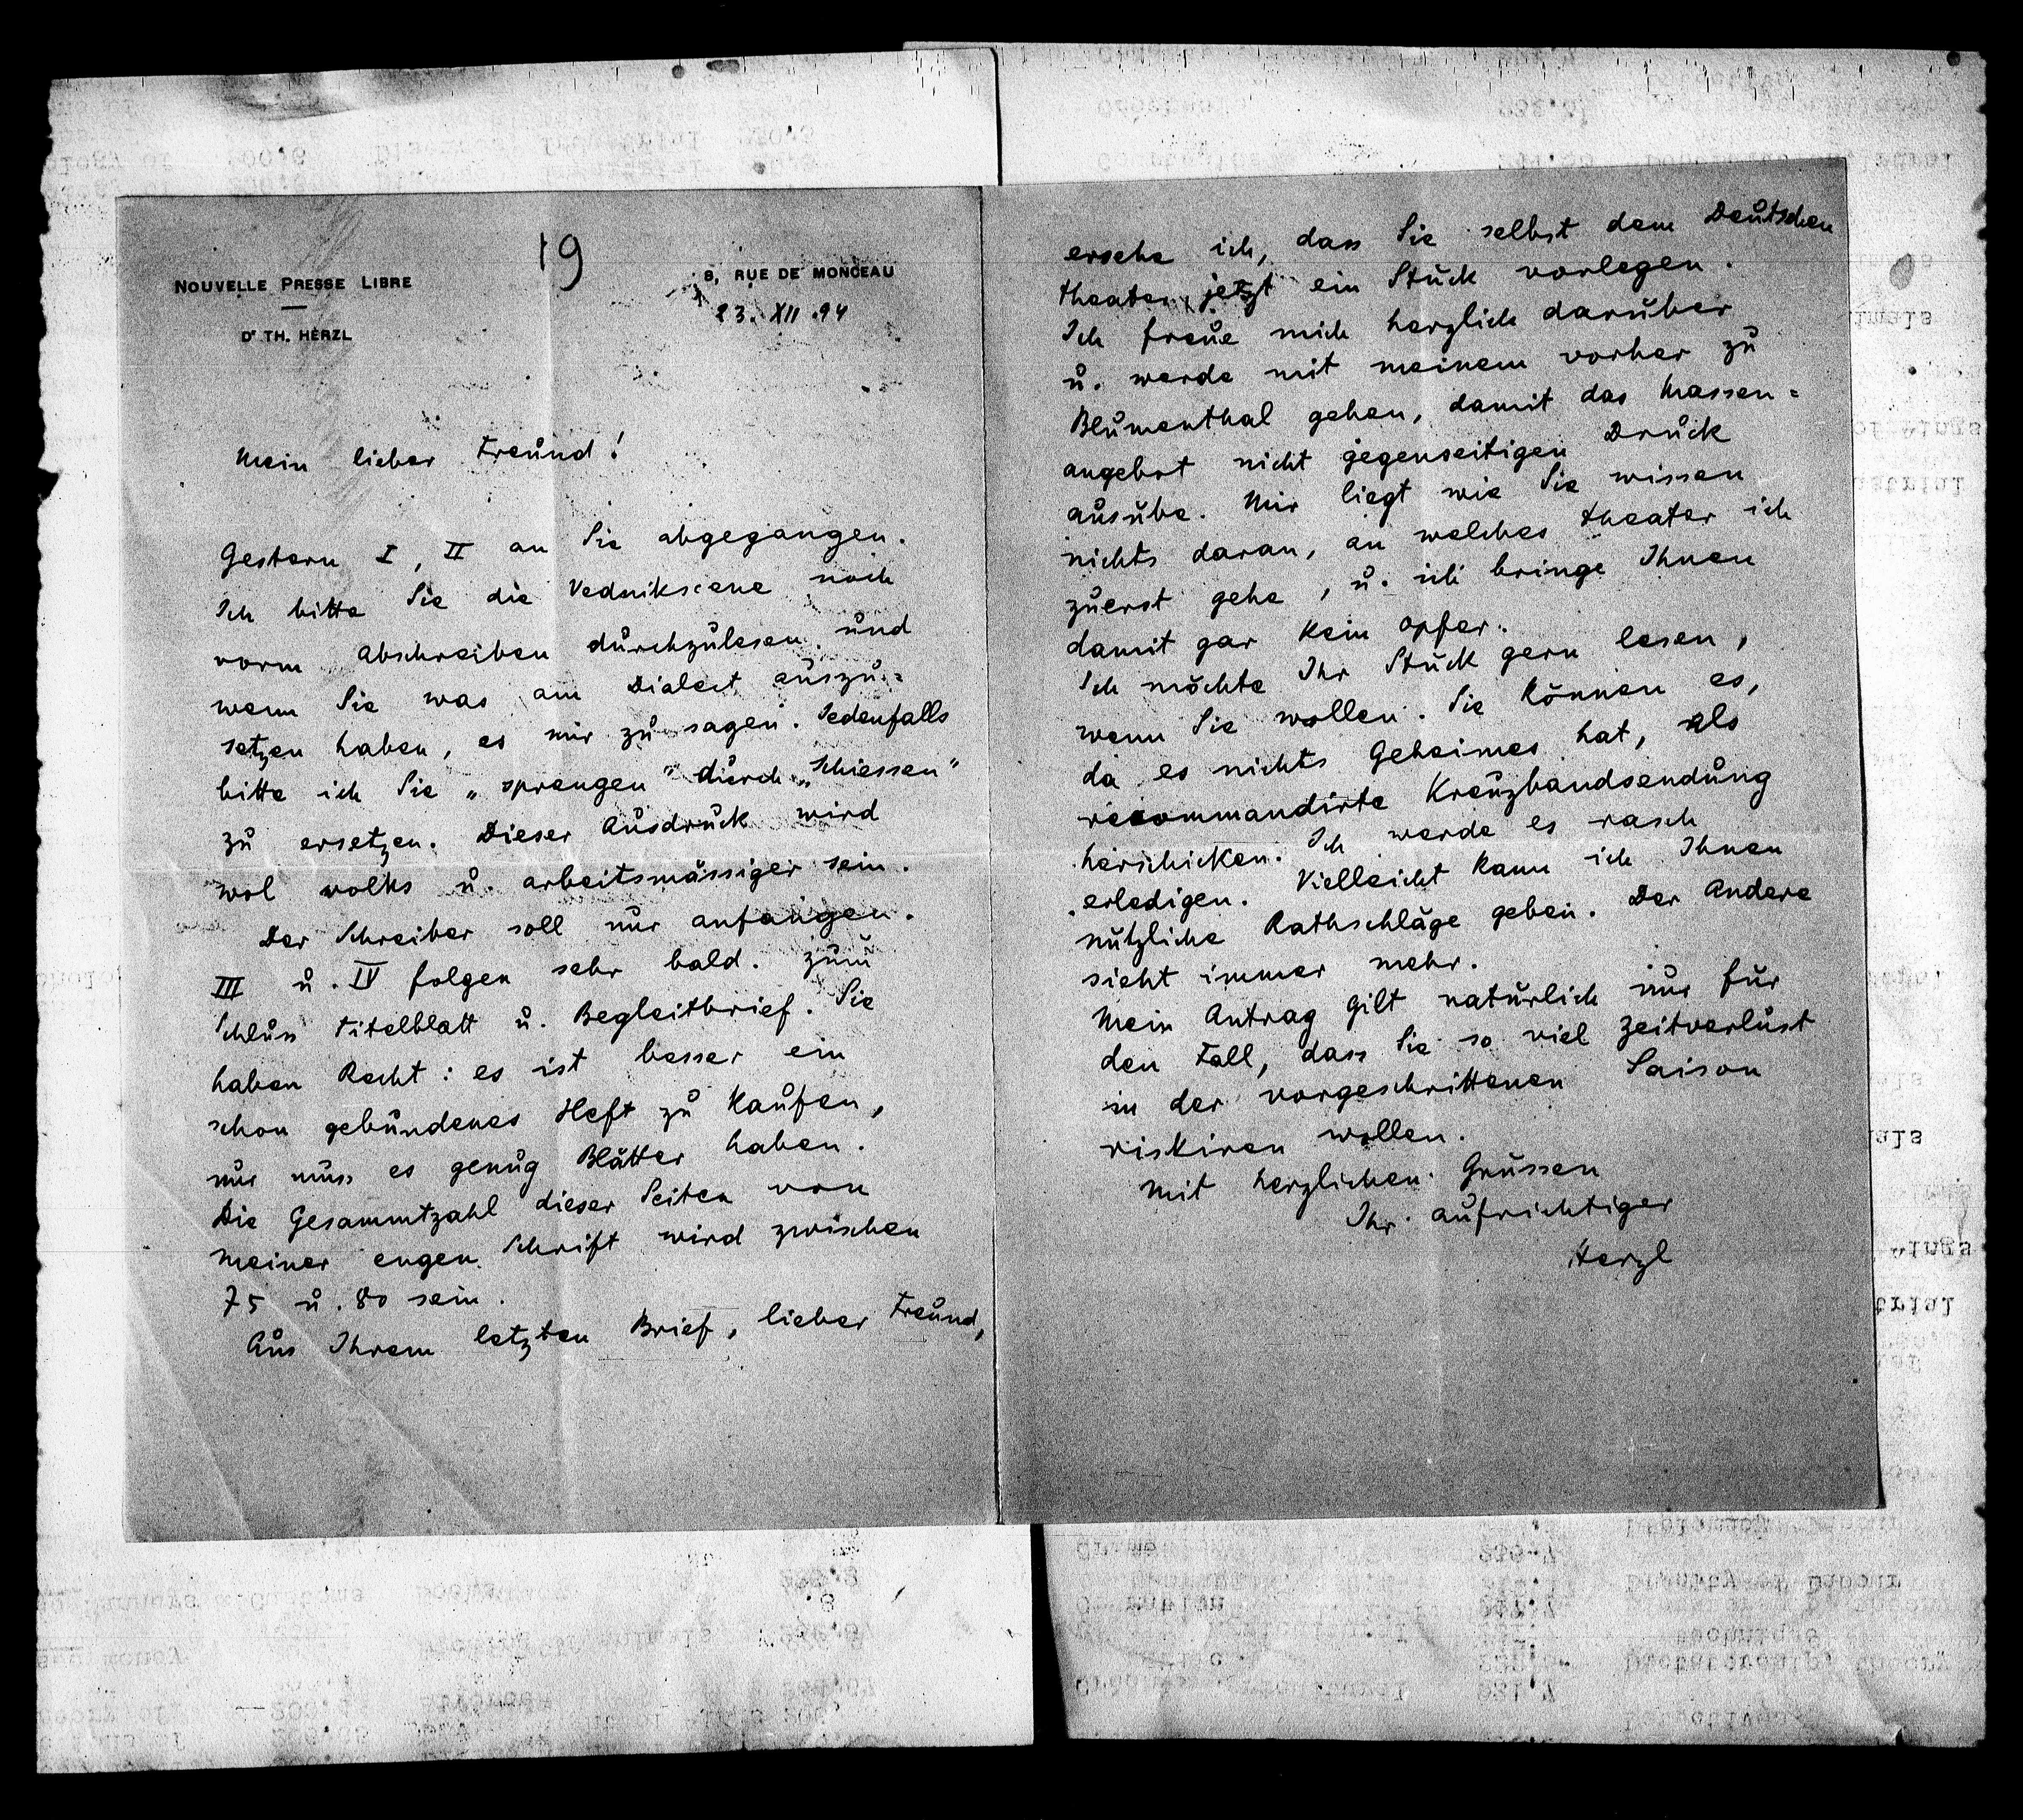 19
NOUVELLE PRESSE LIBRE
Dr TH. HERZL
8, RUE DE MONCEAU
23. XII. 94
Mein lieber Freund!
Gestern I, II an Sie abgegangen.
Ich bitte Sie die Vednikscene noch
vorm Abschreiben durchzulesen und
wenn Sie was am Dialect auszu=
setzen haben, es mir zu sagen. Jedenfalls
bitte ich Sie „sprengen" durch „Schiessen"
zu ersetzen. Dieser Ausdruck wird
wol volks u. arbeitsmässiger sein.
Der Schreiber soll nur anfangen.
III u. IV folgen sehr bald. Zum
Schluss Titelblatt u. Begleitbrief. Sie
haben Recht: es ist besser ein
schon gebundenes Heft zu kaufen,
nur muss es genug Blätter haben.
Die Gesammtzahl dieser Seiten von
meiner engen Schrift wird zwischen
75 u. 80 sein.
Aus Ihrem letzten Brief, lieber Freund,
ersehe ich, dass Sie selbst dem Deutschen
Theater jetzt ein Stück vorlegen.
Ich freue mich herzlich darüber
u. werde mit meinem vorher zu
Blumenthal gehen, damit das Massen=
angebot nicht gegenseitigen Druck
ausübe. Mir liegt wie Sie wissen
nichts daran, an welches Theater ich
zuerst gehe, u. ich bringe Ihnen
damit gar kein Opfer.
Ich möchte Ihr Stück gern lesen,
wenn Sie wollen. Sie können es,
da es nichts Geheimes hat, als
recommandirte Kreuzbandsendung
herschicken. Ich werde es rasch
erledigen. Vielleicht kann ich Ihnen
nützliche Rathschläge geben. Der Andere
sieht immer mehr.
Mein Antrag gilt natürlich nur für
den Fall, dass Sie so viel Zeitverlust
in der vorgeschrittenen Saison
riskiren wollen.
Mit herzlichen Grüssen
Ihr aufrichtiger
Herzl